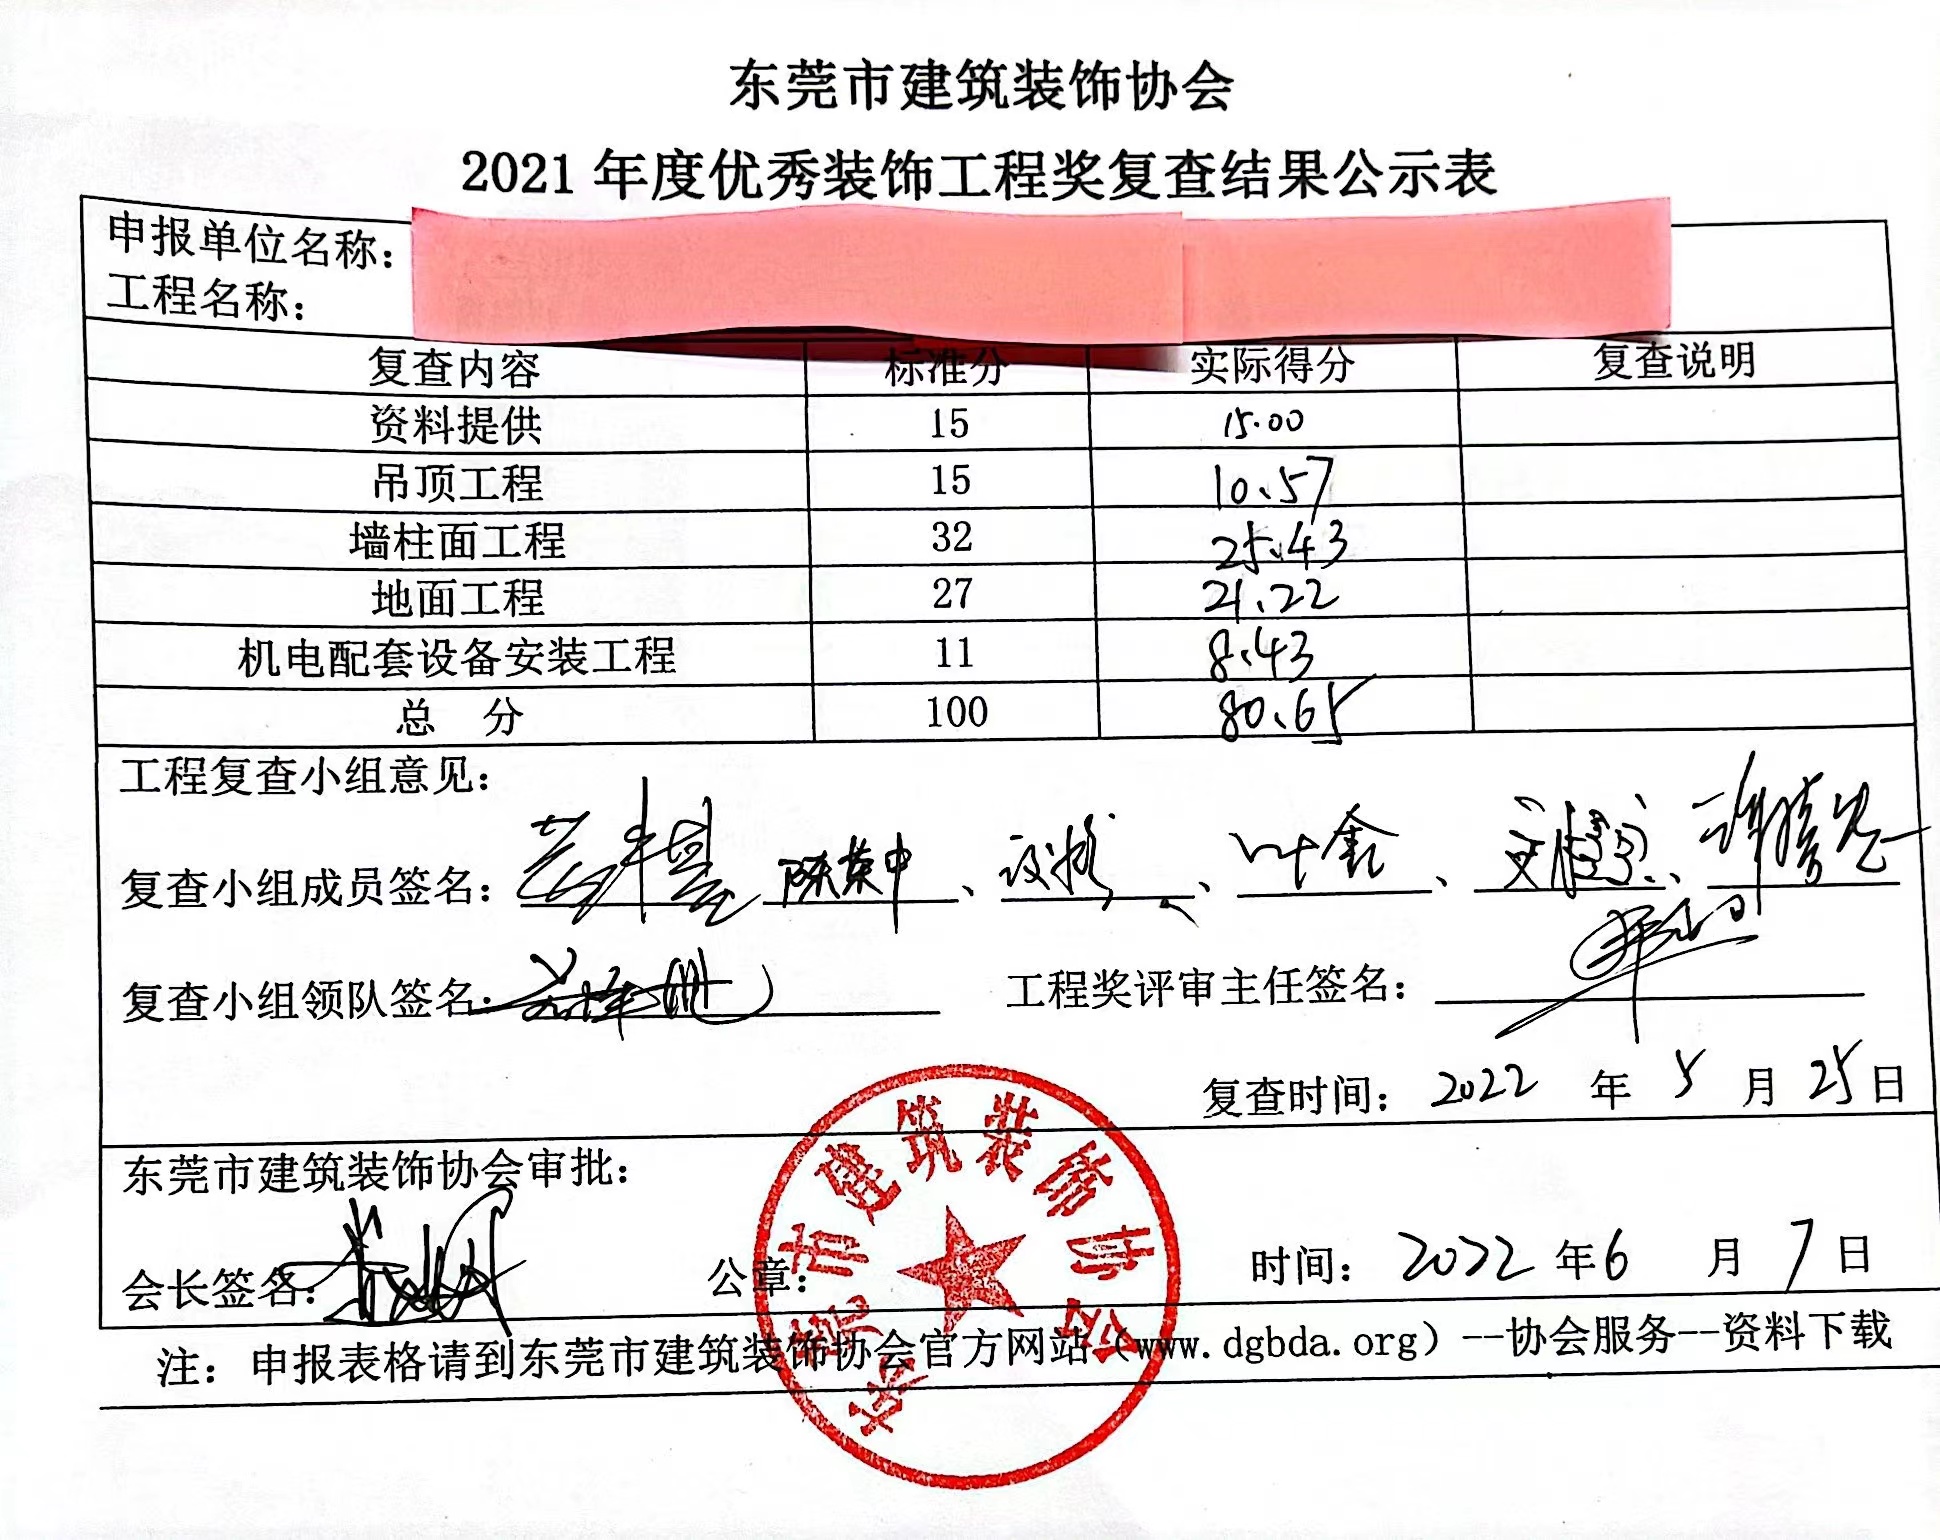 东莞市建筑装饰协会
2021 年度优秀装饰工程奖复查结果公示表
申报单位名称：
工程名称：
复查内容 标准分 实际得分 复查说明
资料提供 15 15.00
吊顶工程 15 10.57
墙柱面工程 32 25.43
地面工程 27 21.22
机电配套设备安装工程 11 8.43
总 分 100 80.65
工程复查小组意见：
复查小组成员签名： 陈荣中、 、叶鑫、
复查小组领队签名： 工程奖评审主任签名：
复查时间： 2022 年 5 月 25 日
东莞市建筑装饰协会审批：
会长签名： 公章： 时间： 2022 年 6 月 7 日
东莞市建筑装饰协会
注：申报表格请到东莞市建筑装饰协会官方网站（www.dgbda.org）--协会服务--资料下载